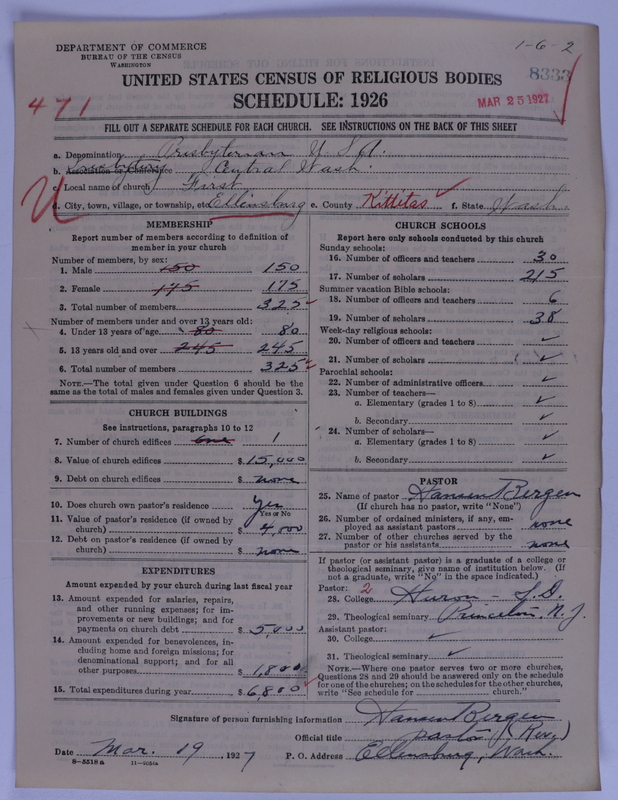 DEPARTMENT OF COMMERCE
BUREAU OF THE CENSUS
WASHINGTON
1-6-2
8333
UNITED STATES CENSUS OF RELIGIOUS BODIES
SCHEDULE: 1926
471
MAR 25 1927
FILL OUT A SEPARATE SCHEDULE FOR EACH CHURCH. SEE INSTRUCTIONS ON THE BACK OF THIS SHEET
a. Denomination Presbyterian U.S.A.
b. Association or Conference Presbytery Central Wash.
c. Local name of church First
d. City, town, village, or township, etc. Ellensburg e. County Kittitas f. State Wash.
MEMBERSHIP
Report number of members according to definition of
member in your church
Number of members, by sex:
1. Male 150 150
2. Female 175 175
3. Total number of members 325
Number of members under and over 13 years old:
4. Under 13 years of age 80 80
5. 13 years old and over 245 245
6. Total number of members 325
NOTE.—The total given under Question 6 should be the
same as the total of males and females given under Question 3.
CHURCH BUILDINGS
See instructions, paragraphs 10 to 12
7. Number of church edifices one 1
8. Value of church edifices $ 15,000
9. Debt on church edifices $ none
10. Does church own pastor's residence Yes
Yes or No
11. Value of pastor's residence (if owned by
church) $ 4,000
12. Debt on pastor's residence (if owned by
church) $ none
EXPENDITURES
Amount expended by your church during last fiscal year
13. Amount expended for salaries, repairs,
and other running expenses; for im-
provements or new buildings; and for
payments on church debt $ 5000
14. Amount expended for benevolences, in-
cluding home and foreign missions; for
denominational support; and for all
other purposes $ 1,800
15. Total expenditures during year $ 6,800
CHURCH SCHOOLS
Report here only schools conducted by this church
Sunday schools:
16. Number of officers and teachers 30
17. Number of scholars 215
Summer vacation Bible schools:
18. Number of officers and teachers 6
19. Number of scholars 38
Week-day religious schools:
20. Number of officers and teachers ✓
21. Number of scholars ✓
Parochial schools:
22. Number of administrative officers ✓
23. Number of teachers—
a. Elementary (grades 1 to 8) ✓
b. Secondary ✓
24. Number of scholars—
a. Elementary (grades 1 to 8) ✓
b. Secondary ✓
PASTOR
25. Name of pastor Hansen Bergen
(If church has no pastor, write "None")
26. Number of ordained ministers, if any, em-
ployed as assistant pastors none
27. Number of other churches served by the
pastor or his assistants none
If pastor (or assistant pastor) is a graduate of a college or
theological seminary, give name of institution below. (If
not a graduate, write "No" in the space indicated.)
Pastor: 2
28. College Huron - S.D.
29. Theological seminary Princeton, N.J.
Assistant pastor:
30. College ✓
31. Theological seminary ✓
NOTE.—Where one pastor serves two or more churches,
Questions 28 and 29 should be answered only on the schedule
for one of the churches; on the schedules for the other churches,
write "See schedule for church."
Signature of person furnishing information Hansen Bergen
Official title pastor (Rev.)
Date Mar. 19, 1927 P. O. Address Ellensburg, Wash.
8-5518a